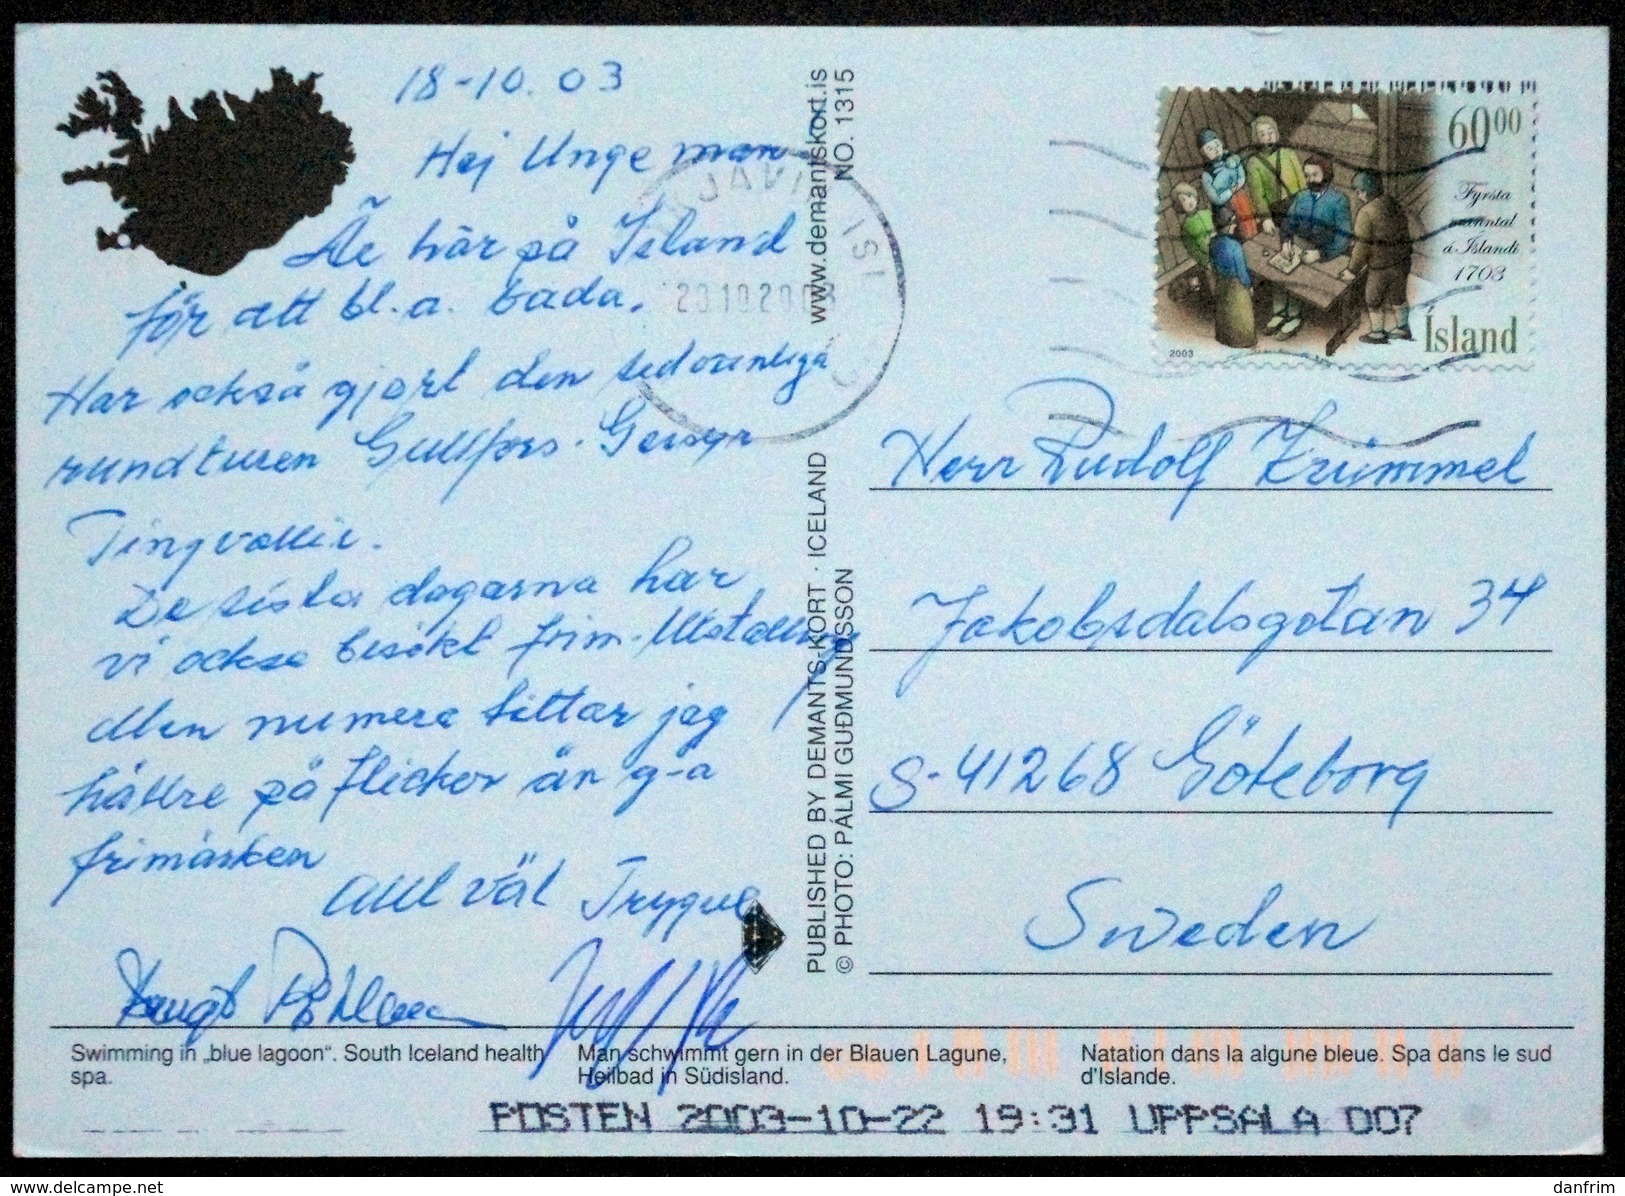 18-10.03
Hej Unge man
Är här på Island
för att bl.a. bada.
Har också gjort den sedvanliga
rundturen Gullfoss-Geisyr
Tingvallir.
De sista dagarna har
vi också besökt frim.utställning
Men numera tittar jag
hällre på flickor än g-a
frimärken
Allt väl Trygve
www.demantskort.is
NO. 1315
PUBLISHED BY DEMANTS-KORT · ICELAND
© PHOTO: PÁLMI GUÐMUNDSSON
JAVI ISL
20102003
60 00
Fyrsta
manntal
á Íslandi
1703
Ísland
2003
Herr Rudolf Krümmel
Jakobsdalsgatan 34
S-41268 Göteborg
Sweden
Swimming in „blue lagoon“. South Iceland health
spa.
Man schwimmt gern in der Blauen Lagune,
Heilbad in Südisland.
Natation dans la algune bleue. Spa dans le sud
d'Islande.
POSTEN 2003-10-22 19:31 UPPSALA 007
www.delcampe.net
danfrim